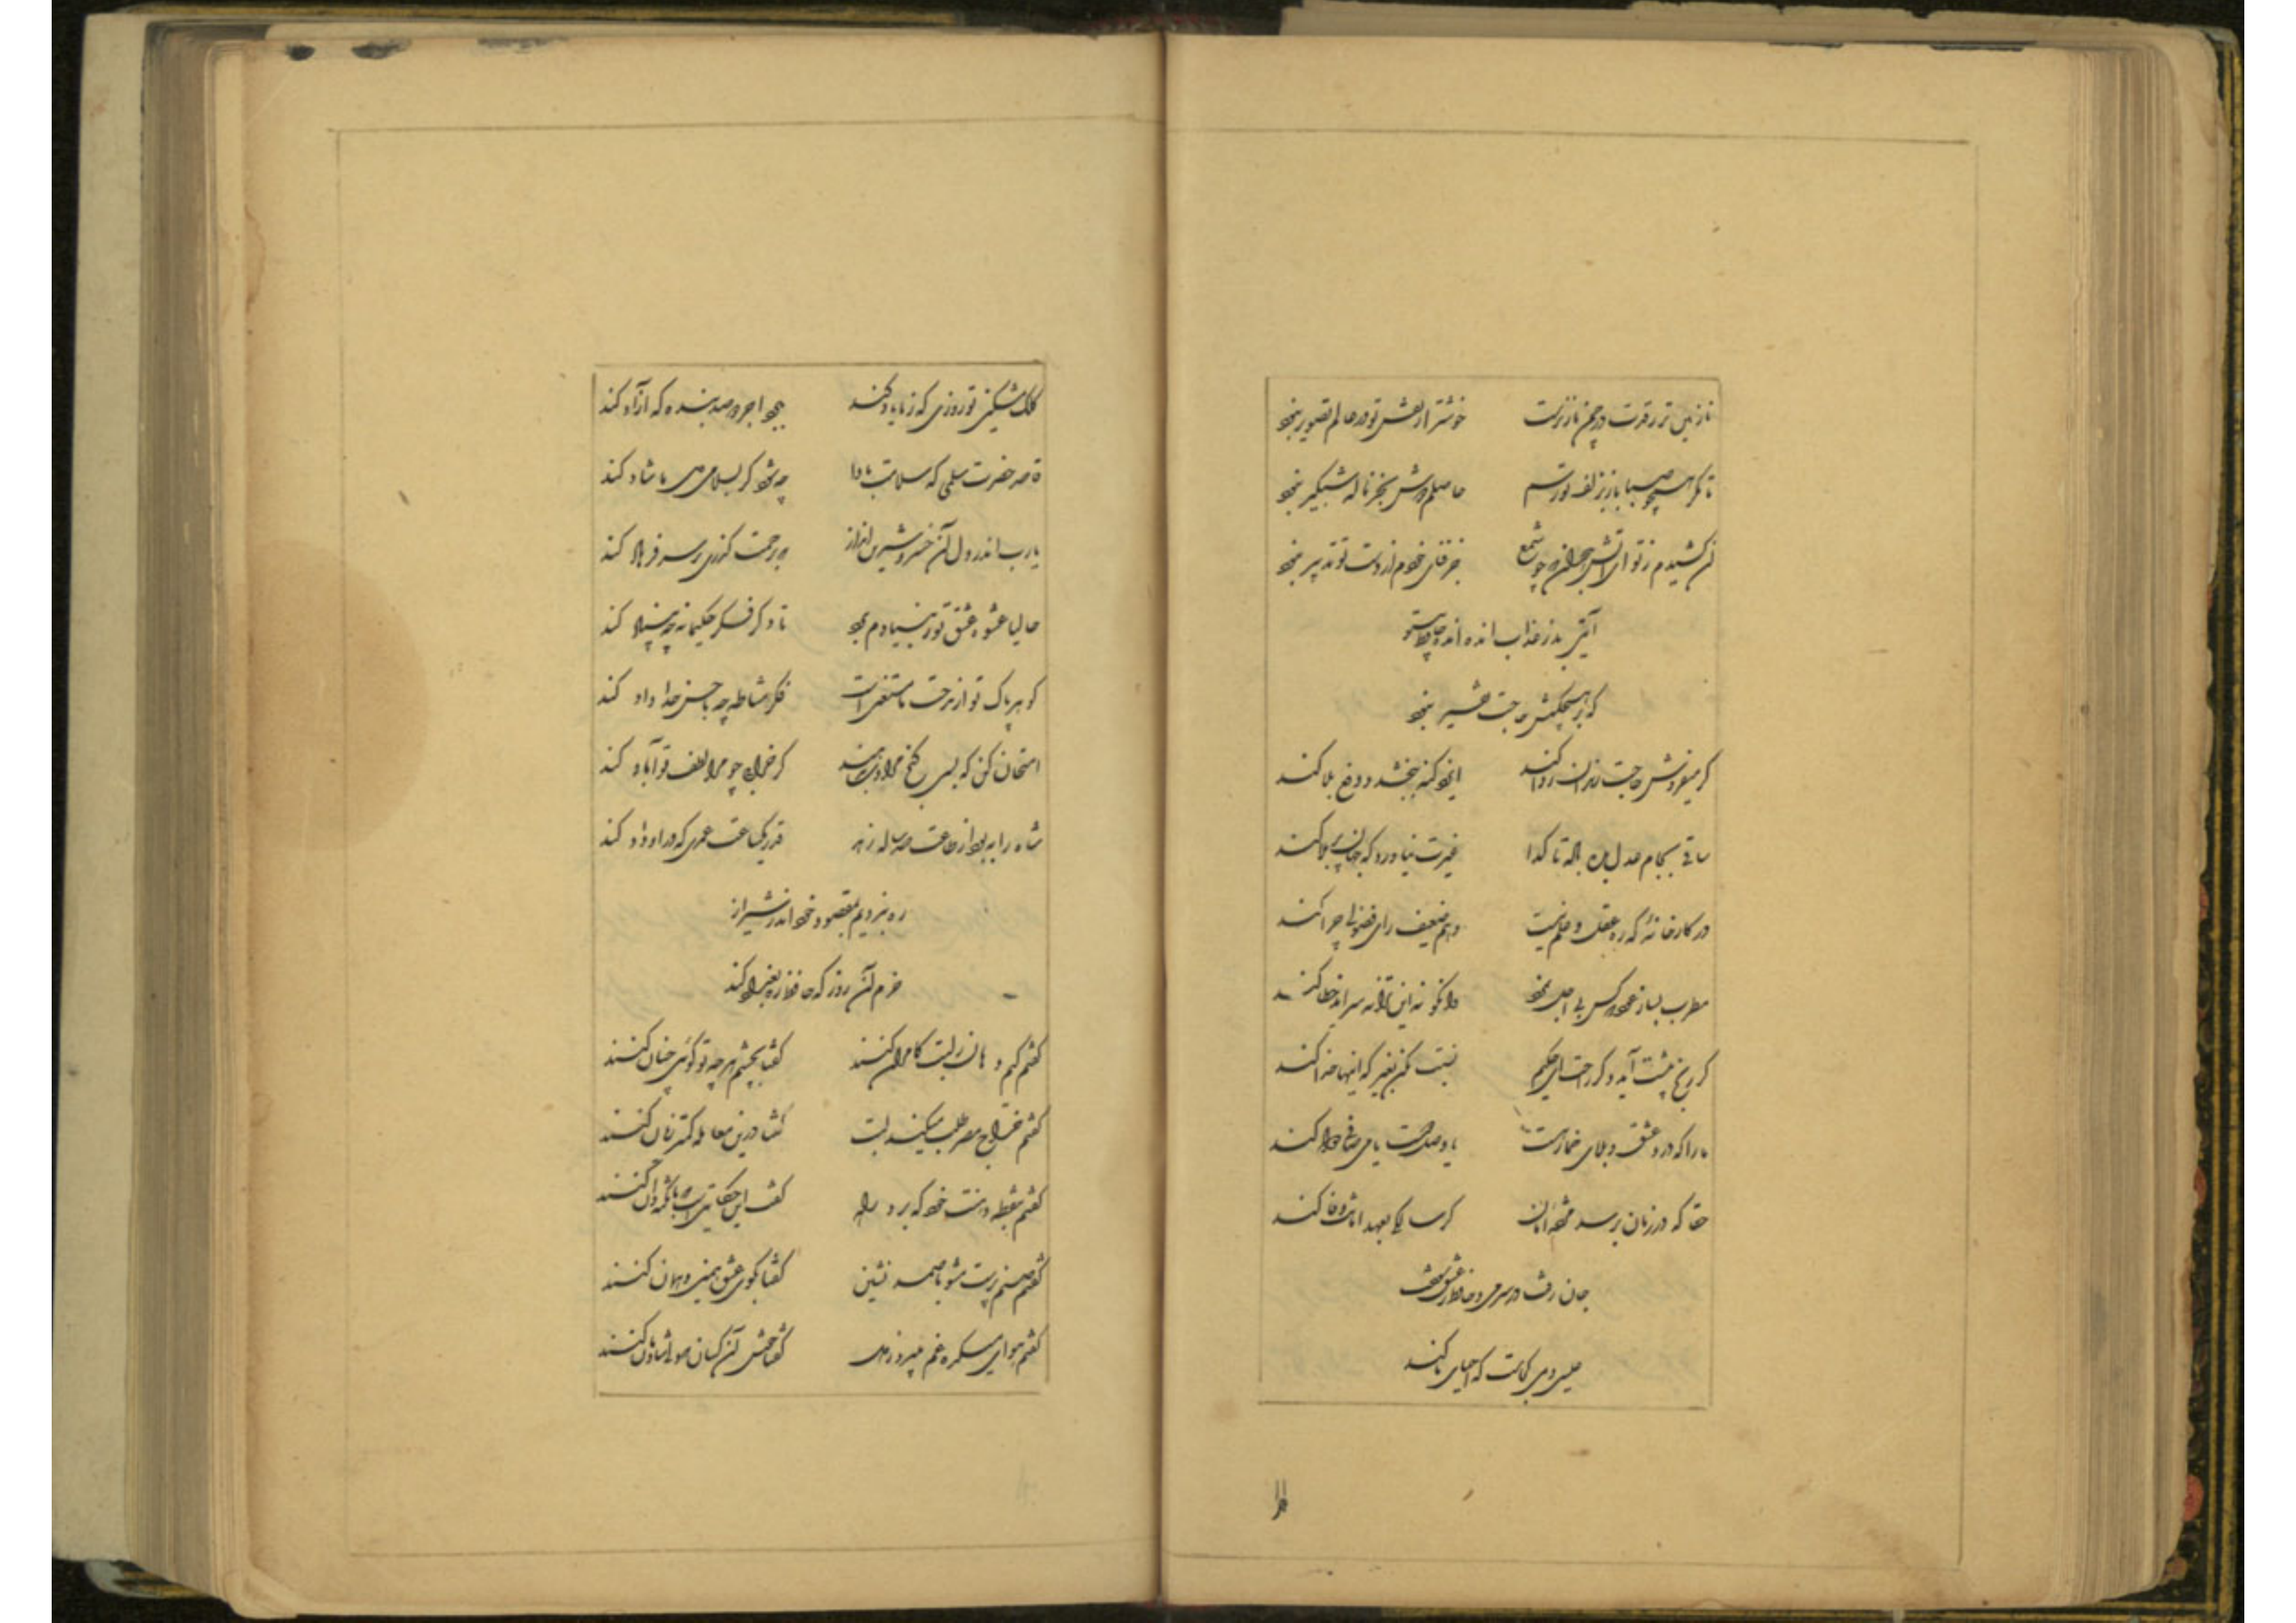 نازنین تر ز قدت در چمن ناز نرست خوشتر از نقش تو در عالم تصویر نبود
تا مگر همچو صبا باز بزلف تو رسم حاصلم دوش بجز ناله شبگیر نبود
آن کشیدم ز تو ای آتش هجران که چو شمع جز فنای خودم از دست تو تدبیر نبود
آیتی بد ز عذاب انده حافظ بی تو
که بر هیچکسش حاجت تفسیر نبود
گر میفروش حاجت رندان روا کند ایزد گنه ببخشد و دفع بلا کند
ساقی بجام عدل بده باده تا گدا غیرت نیاورد که جهان پر بلا کند
در کارخانه که ره عقل و علم نیست وهم ضعیف رای فضولی چرا کند
مطرب بساز عود که کس بی اجل نمرد وانکو نه این ترانه سراید خطا کند
گر رنج پیشت آید و گر راحت ای حکیم نسبت مکن بغیر که اینها خدا کند
ما را که درد عشق و بلای خمار هست یا وصل دوست یا می صافی دوا کند
حقا که در زمان برسد مژده امان گر سالکی بعهد امانت وفا کند
جان رفت در سر می و حافظ ز عشق سوخت
عیسی دمی کجاست که احیای ما کند
کلک مشکین تو روزی که ز ما یاد کند ببرد اجر دو صد بنده که آزاد کند
قاصد حضرت سلمی که سلامت بادا چه شود گر بسلامی دل ما شاد کند
یارب اندر دل آن خسرو شیرین انداز که برحمت گذری بر سر فرهاد کند
حالیا عشوه عشق تو ز بنیادم برد تا دگر فکر حکیمانه چه بنیاد کند
گوهر پاک تو از مدحت ما مستغنی است فکر مشاطه چه با حسن خداداد کند
امتحان کن که بسی گنج مرادت بدهند گر خرابی چو مرا لطف تو آباد کند
شاه را به بود از طاعت صد ساله زهد قدر یک ساعت عمری که در او داد کند
ره نبردیم بمقصود خود اندر شیراز
خرم آن روز که حافظ ره بغداد کند
گفتم کیم دهان و لبت کامران کنند گفتا بچشم هر چه تو گوئی چنان کنند
گفتم خراج مصر طلب میکند لبت گفتا درین معامله کمتر زیان کنند
گفتم بنقطه دهنت خود که برد راه گفت این حکایتیست که با نکته دان کنند
گفتم صنم پرست مشو با صمد نشین گفتا بکوی عشق همین و همان کنند
گفتم هوای میکده غم میبرد ز دل گفتا خوش آن کسان که دلی شادمان کنند